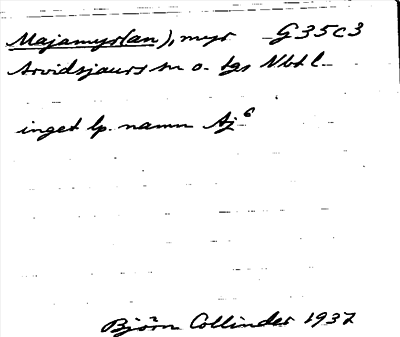 Majamyr(an), myr G35c3
Arvidsjaurs sn o. tgs Nbt l.
inget lp. namn Aj 6
Björn Collinder 1937